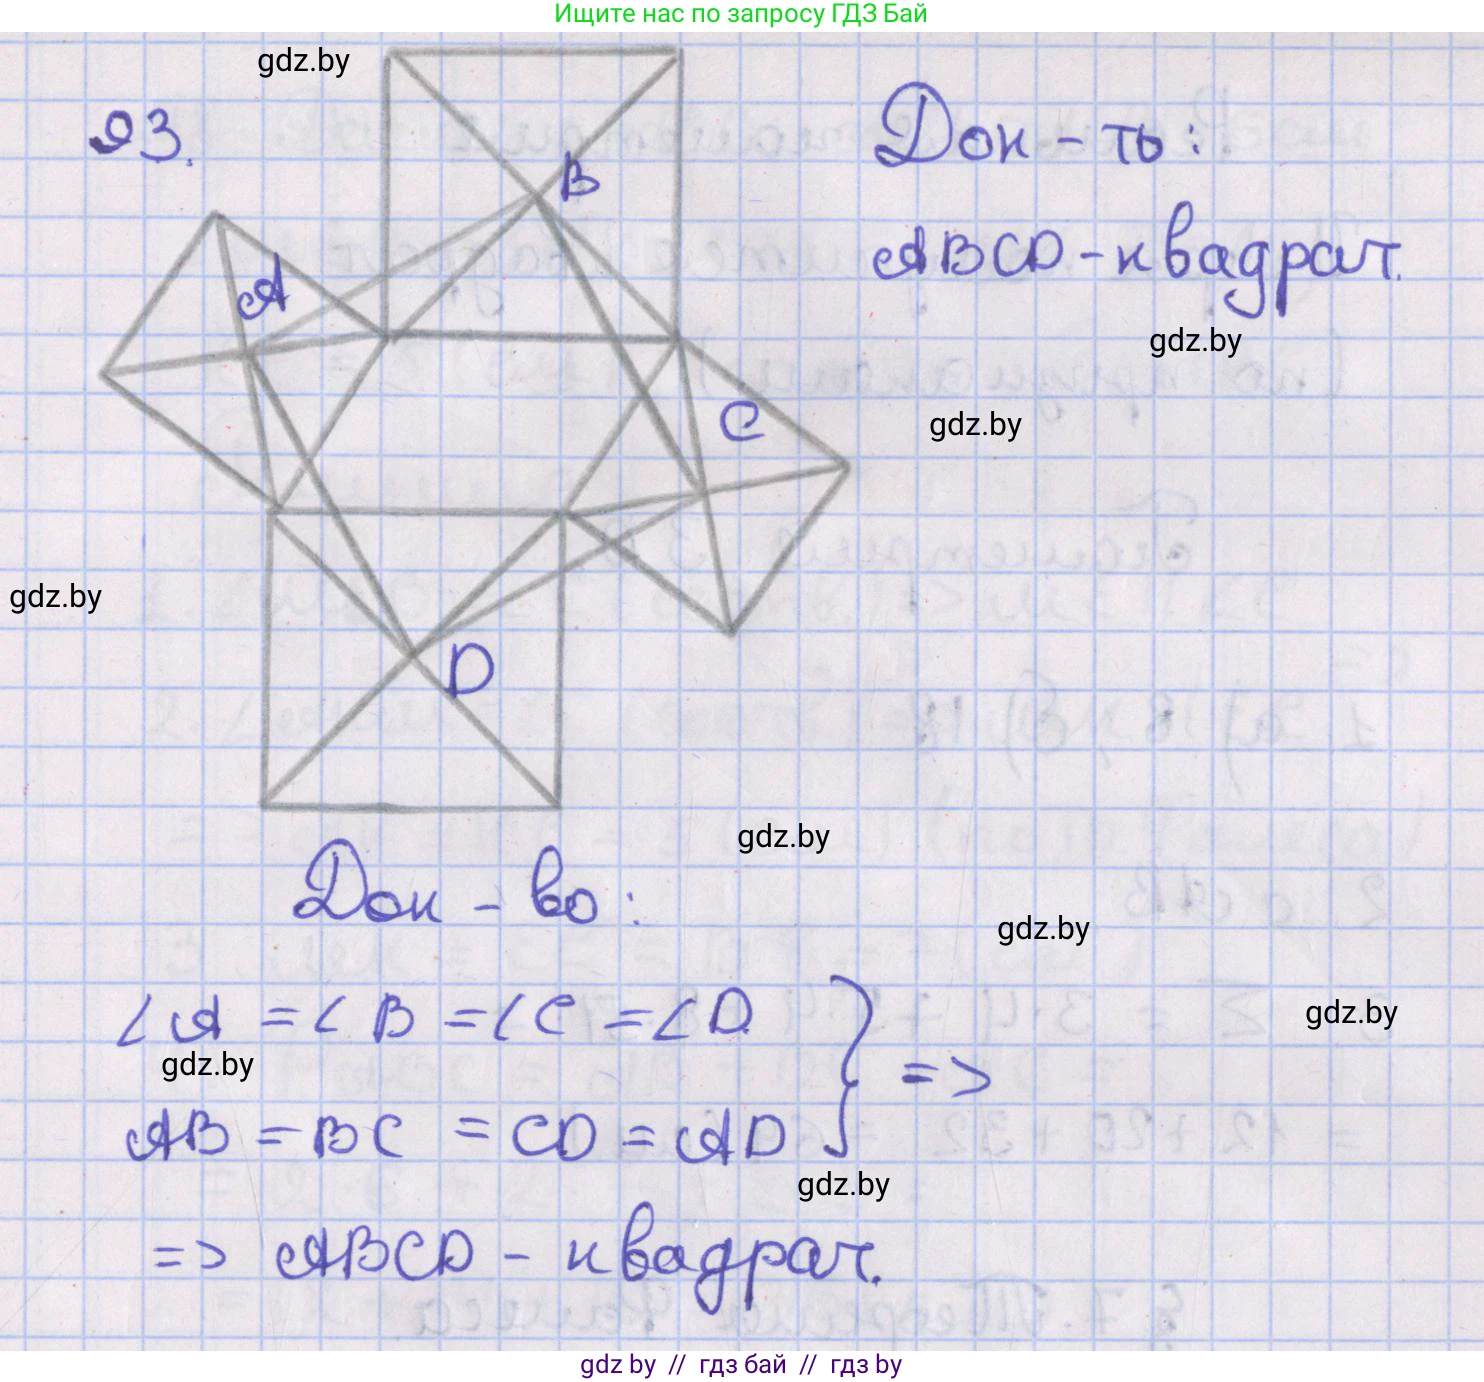 Ищите нас по запросу ГДЗ Бай
gdz.by
93.
Док-ть:
B
ABCD-квадрат.
A
gdz.by
gdz.by
C
gdz.by
D
gdz.by
Док-во:
gdz.by
∠A = ∠B = ∠C = ∠D
gdz.by
gdz.by
=>
AB = BC = CD = AD
gdz.by
=> ABCD - квадрат.
gdz by // гдз бай // гдз by